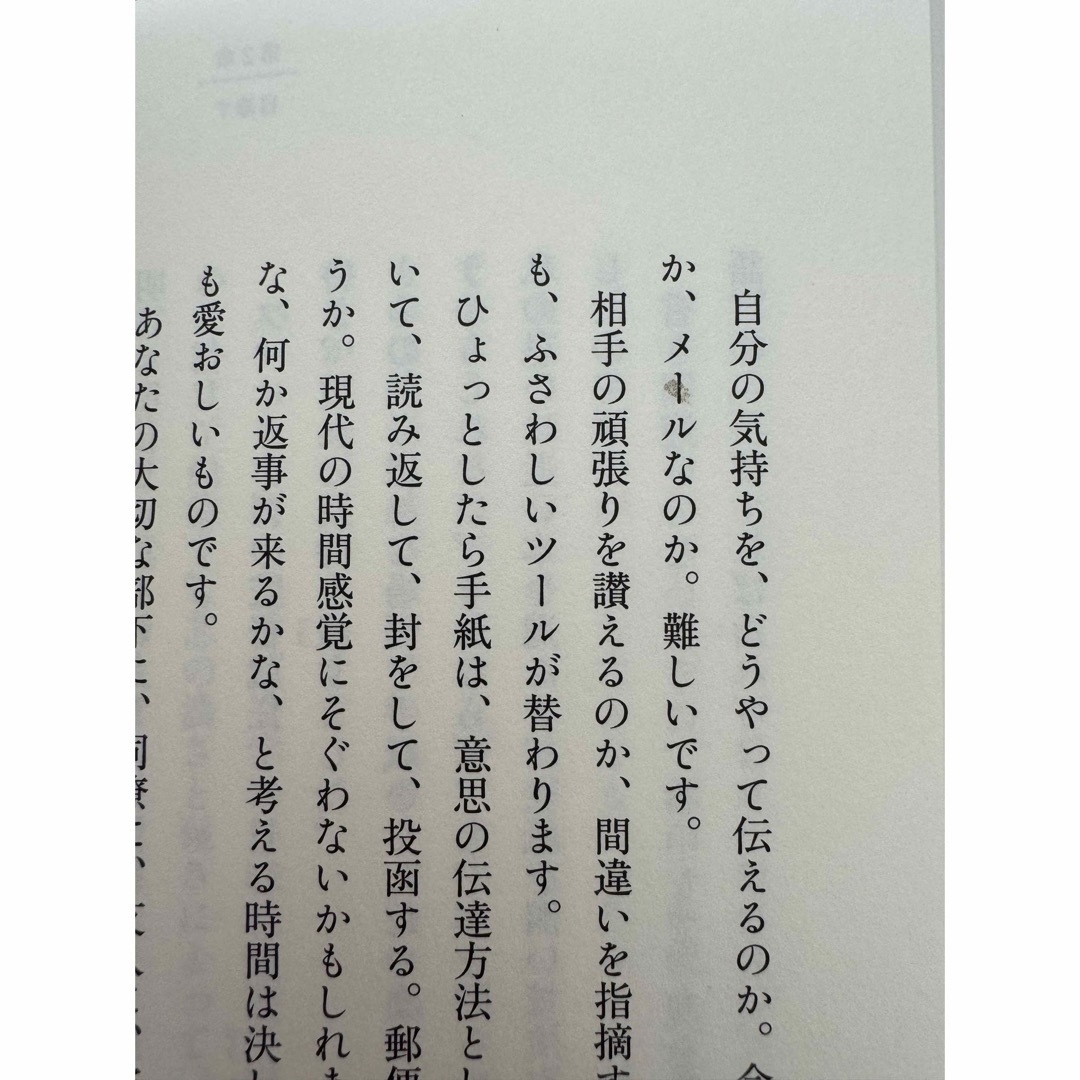 自分の気持ちを、どうやって伝えるのか。
か、メールなのか。難しいです。
相手の頑張りを讃えるのか、間違いを指摘す
も、ふさわしいツールが替わります。
ひょっとしたら手紙は、意思の伝達方法とし
いて、読み返して、封をして、投函する。郵便
うか。現代の時間感覚にそぐわないかもしれま
な、何か返事が来るかな、と考える時間は決し
も愛おしいものです。
あなたの大切な部下に、同僚に、